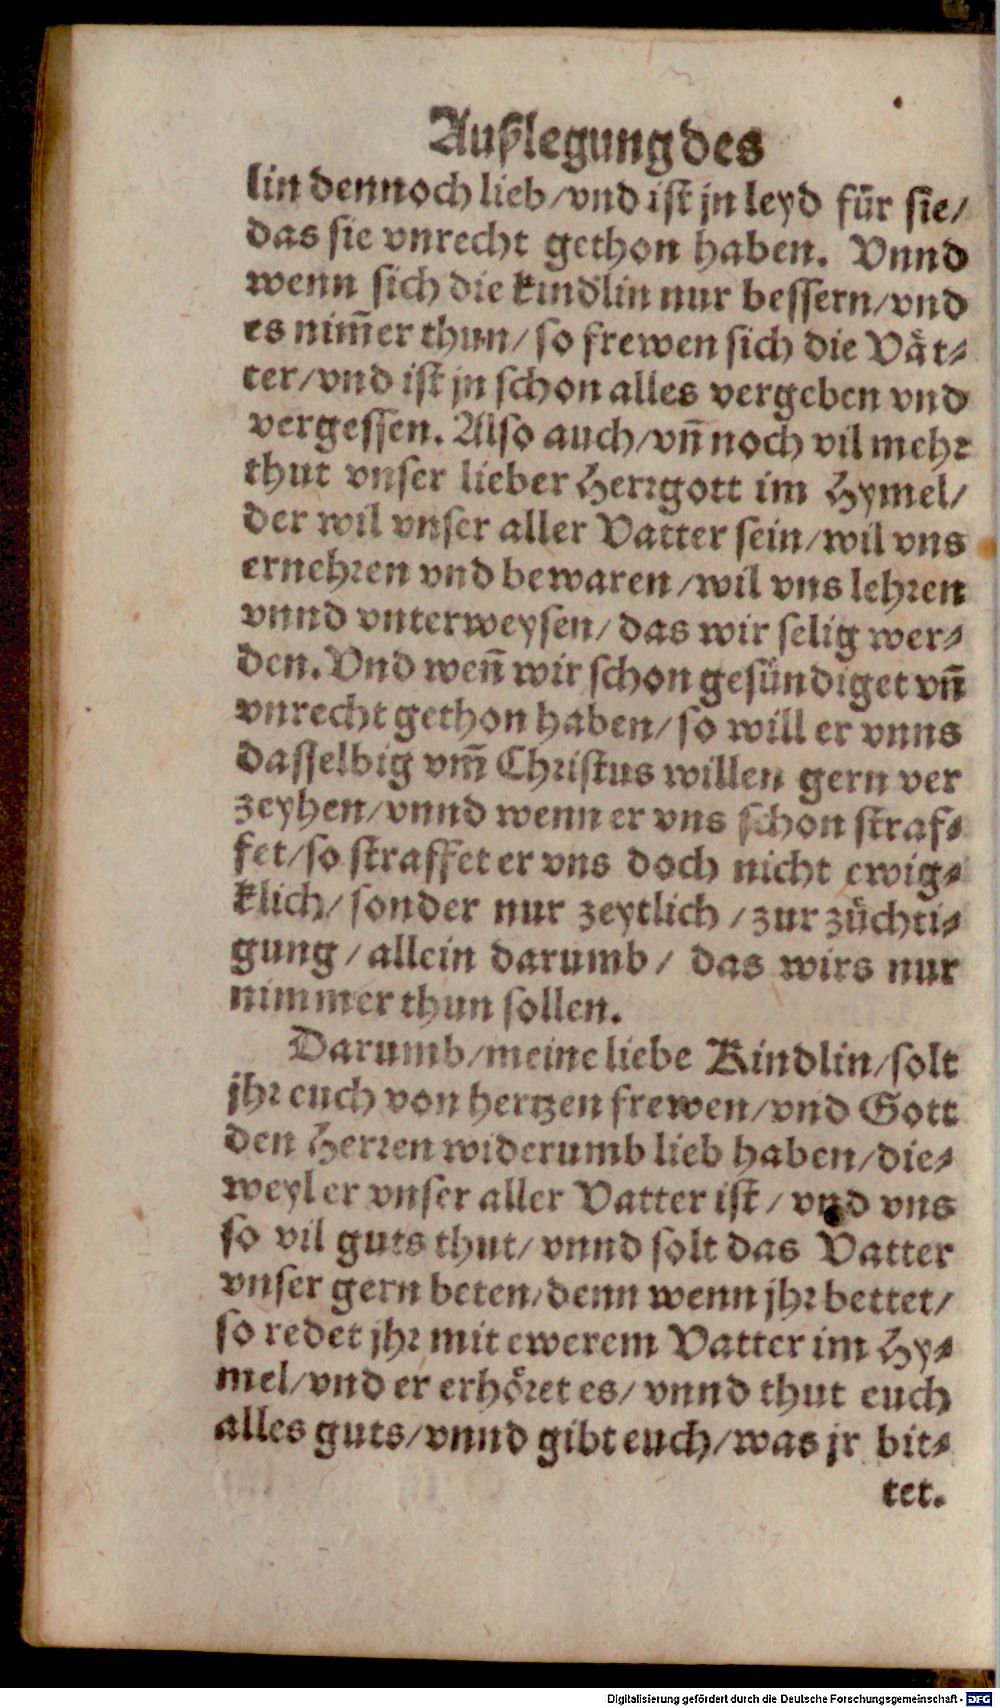 Außlegung des
lin dennoch lieb/vnd ist jn leyd für sie/
das sie vnrecht gethon haben. Vnnd
wenn sich die kindlin nur bessern/vnd
es nim̃er thun/so frewen sich die Vät-
ter/vnd ist jn schon alles vergeben vnd
vergessen. Also auch/vñ noch vil mehr
thut vnser lieber Herrgott im Hymel/
der wil vnser aller Vatter sein/wil vns
ernehren vnd bewaren/wil vns lehren
vnnd vnterweysen/das wir selig wer-
den. Vnd weñ wir schon gesündiget vñ
vnrecht gethon haben/so will er vnns
dasselbig vm̃ Christus willen gern ver
zeyhen/vnnd wenn er vns schon straf-
fet/so straffet er vns doch nicht ewig-
klich/sonder nur zeytlich/zur züchti-
gung/allein darumb/das wirs nur
nimmer thun sollen.
Darumb/meine liebe Kindlin/solt
jhr euch von hertzen frewen/vnd Gott
den Herren widerumb lieb haben/die-
weyl er vnser aller Vatter ist/vnd vns
so vil guts thut/vnnd solt das Vatter
vnser gern beten/denn wenn jhr bettet/
so redet jhr mit ewerem Vatter im Hy-
mel/vnd er erhöret es/vnnd thut euch
alles guts/vnnd gibt euch/was jr bit-
tet.
Digitalisierung gefördert durch die Deutsche Forschungsgemeinschaft - DFG